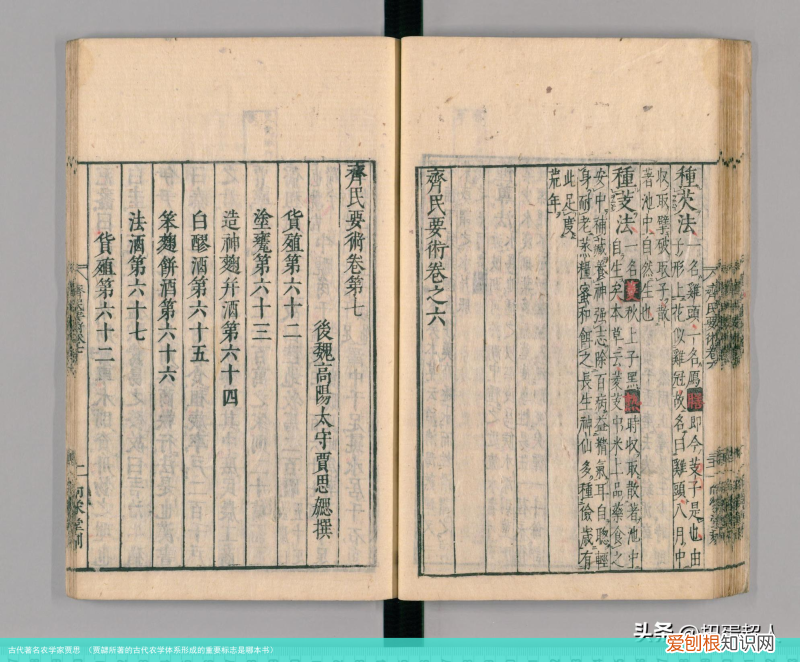 種芡法一名雞頭一名鴈 即今芡子是也由
子形上花似雞冠故名曰雞頭八月中
收取擘破取子散
著池中自然生也
種芰法一名 秋上子黑 時收取散著池中
自生矣本草云菱芰中米上品藥食之
安中補藏養神強志除百病益精氣耳目聰輕
身耐老蒸糧蜜和餅之長生神仙多種儉歲有
此足度
荒年
齊民要術卷之六
齊民要術卷第七
後魏高陽太守賈思勰撰
貨殖第六十二
塗甕第六十三
造神麴并酒第六十四
白醪酒第六十五
笨麴餅酒第六十六
法酒第六十七
貨殖第六十二
头条 @扭蛋超人
爱刨根知识网
古代著名农学家贾思 （贾勰所著的古代农学体系形成的重要标志是哪本书）